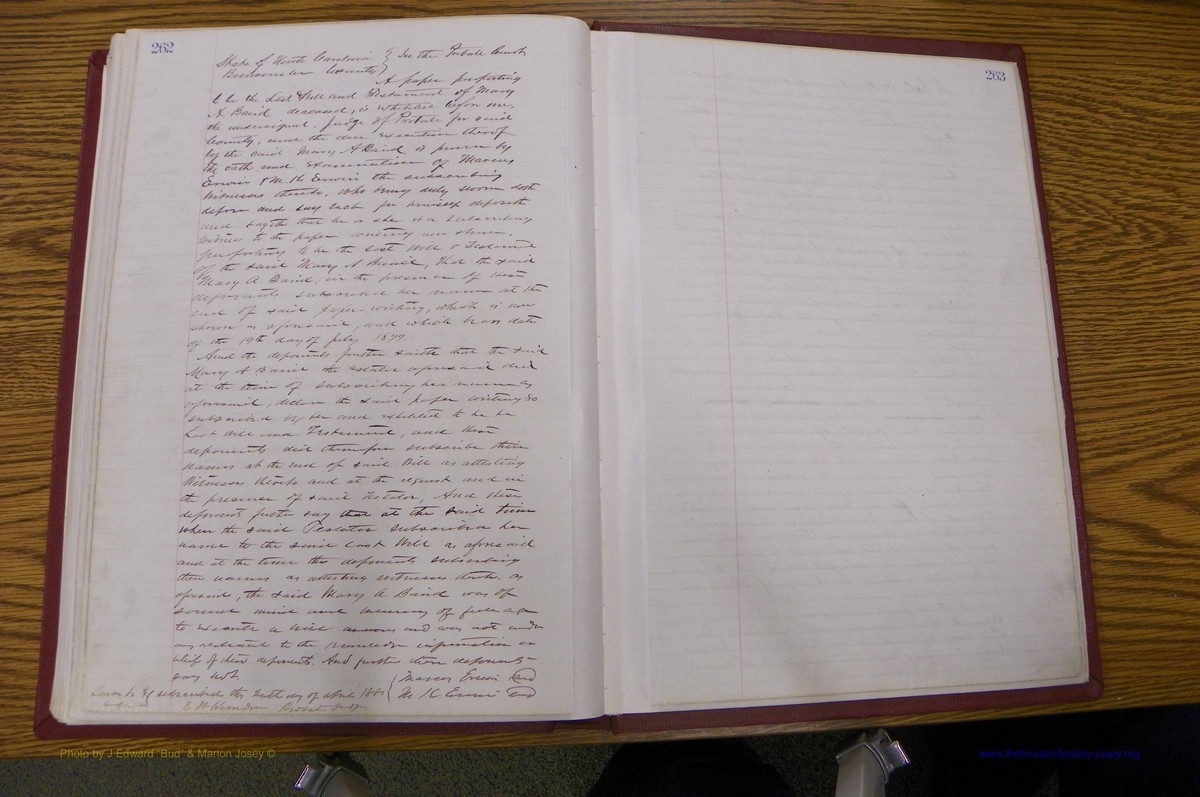 262
State of North Carolina } In the Probate Court
Buncombe County
A paper purporting
to be the Last Will and Testament of Mary
A Baird deceased, is exhibited before me,
the undersigned Judge of Probate for said
County, and the due execution thereof
by the said Mary A Baird is proven by
the oath and examination of Marcus
Erwin & M. K Erwin the subscribing
witnesses thereto, who being duly sworn doth
depose and say each for himself deposeth
and sayeth that he is a subscribing
witness to the paper writing now shown,
purporting to be the Last Will & Testament
of the said Mary A Baird, that the said
Mary A Baird, in the presence of these
deponents subscribed her name at the
end of said paper-writing, which is now
shown as aforesaid, and which bears date
of the 19th day of July 1877.
And the deponents further saith that the said
Mary A Baird the testator aforesaid did
at the time of subscribing her name as
aforesaid, declare the said paper writing so
subscribed by her and exhibited to be her
Last Will and Testament, and these
deponents did thereupon subscribe their
names at the end of said Will as attesting
Witnesses thereto and at the request and in
the presence of said testator, And these
deponents further say that at the said time
when the said Testator subscribed her
name to the said Last Will as aforesaid
and at the time the deponents subscribing
their names as attesting witnesses thereto as
aforesaid, the said Mary A Baird was of
sound mind and memory of full age
to execute a will and was not under
any restraint to the knowledge information or
belief of these deponents. And further these deponents
say not.
Marcus Erwin
M K Erwin
Sworn to & subscribed this day of April 1880
before me
Probate Judge
263
Photo by J Edward "Bud" & Marion Josey ©
www.thehouseofjossey-josey.org